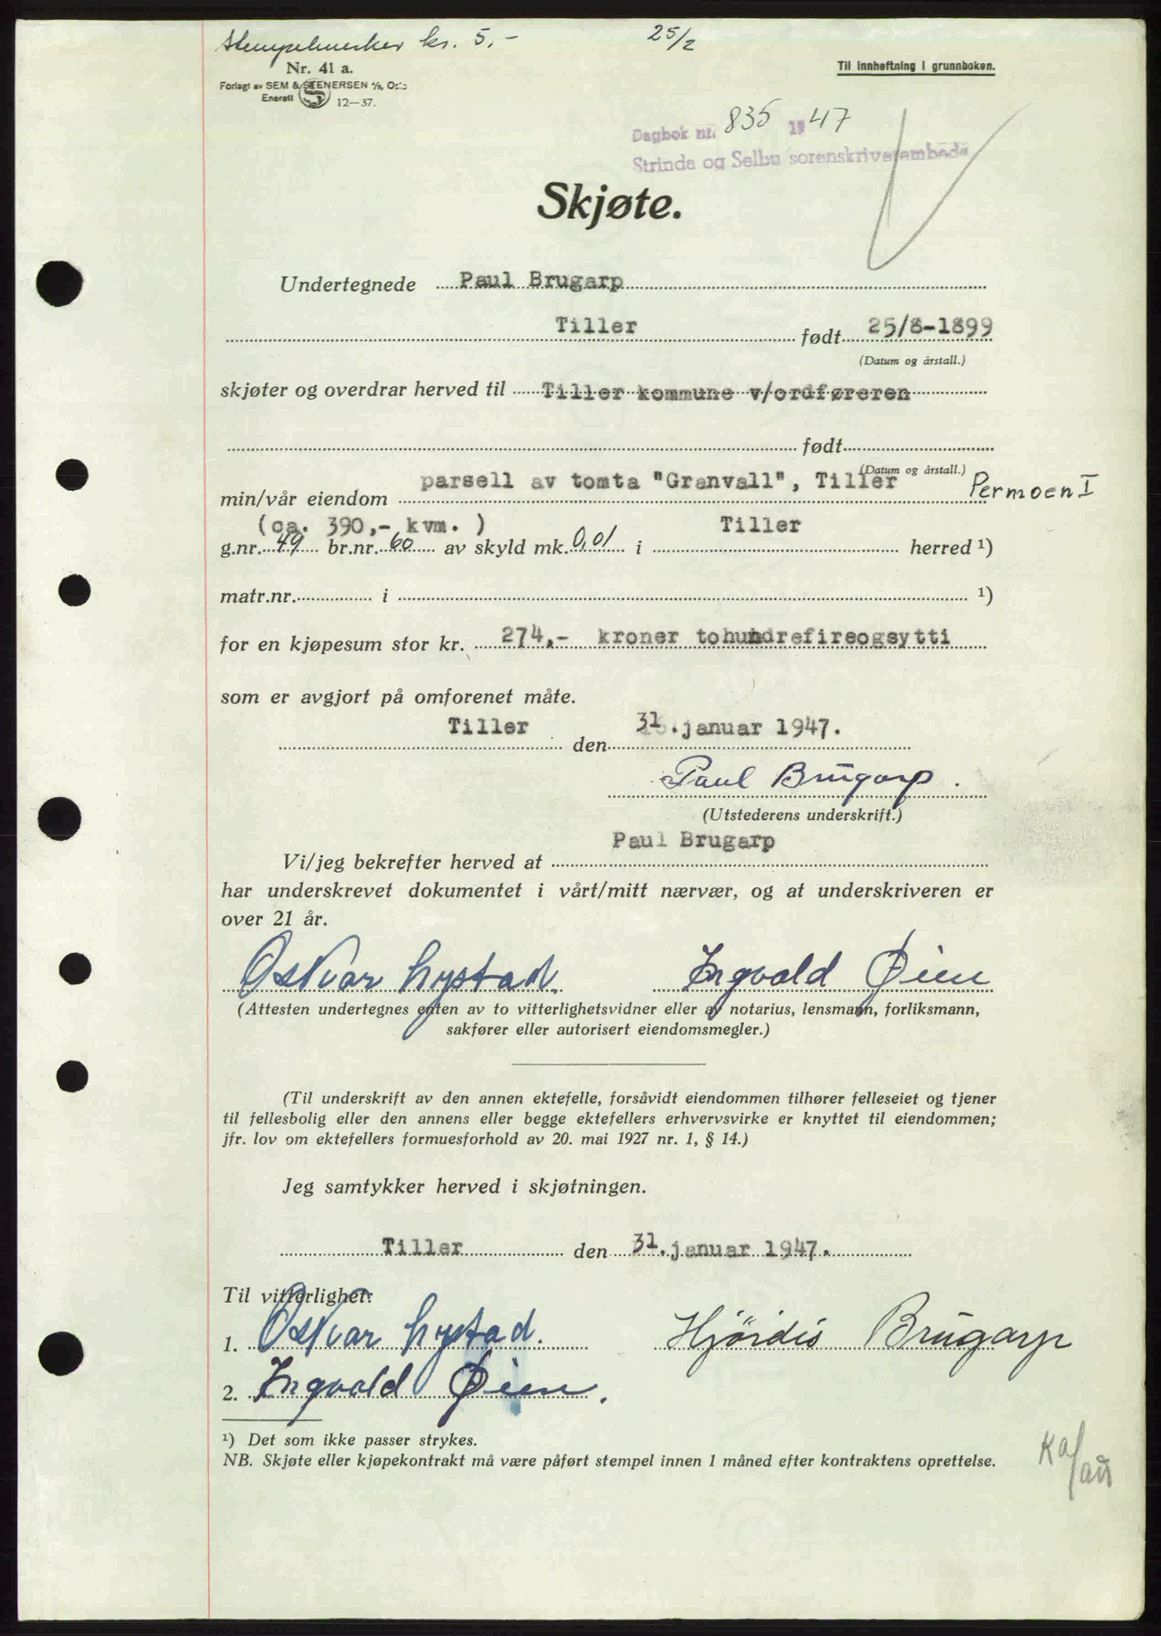 Stempelmerker kr. 5,-
25/2
Nr. 41 a.
Forlagt av SEM & STENERSEN A/S, Oslo
Enerett 12—37.
Til innheftning i grunnboken.
Dagbok nr. 835 1947
Strinda og Selbu sorenskriverembede
Skjøte.
Undertegnede Paul Brugarp
Tiller født 25/8-1899
(Datum og årstall.)
skjøter og overdrar herved til Tiller kommune v/ordføreren
født
(Datum og årstall.)
min/vår eiendom parsell av tomta "Granvall", Tiller Permoen I
(ca. 390,- kvm. ) Tiller
g.nr. 49 br.nr. 60 av skyld mk. 0,01 i herred ¹)
matr.nr. i ¹)
for en kjøpesum stor kr. 274,- kroner tohundrefireogsytti
som er avgjort på omforenet måte.
Tiller den 31. januar 1947.
Paul Brugarp.
(Utstederens underskrift.)
Vi/jeg bekrefter herved at Paul Brugarp
har underskrevet dokumentet i vårt/mitt nærvær, og at underskriveren er
over 21 år.
Oskar Lystad. Ingvald Øien
(Attesten undertegnes enten av to vitterlighetsvidner eller av notarius, lensmann, forliksmann,
sakfører eller autorisert eiendomsmegler.)
(Til underskrift av den annen ektefelle, forsåvidt eiendommen tilhører felleseiet og tjener
til fellesbolig eller den annens eller begge ektefellers erhvervsvirke er knyttet til eiendommen;
jfr. lov om ektefellers formuesforhold av 20. mai 1927 nr. 1, § 14.)
Jeg samtykker herved i skjøtningen.
Tiller den 31. januar 1947.
Til vitterlighet:
1. Oskar Lystad. Hjördis Brugarp
2. Ingvald Øien.
¹) Det som ikke passer strykes.
NB. Skjøte eller kjøpekontrakt må være påført stempel innen 1 måned efter kontraktens oprettelse.